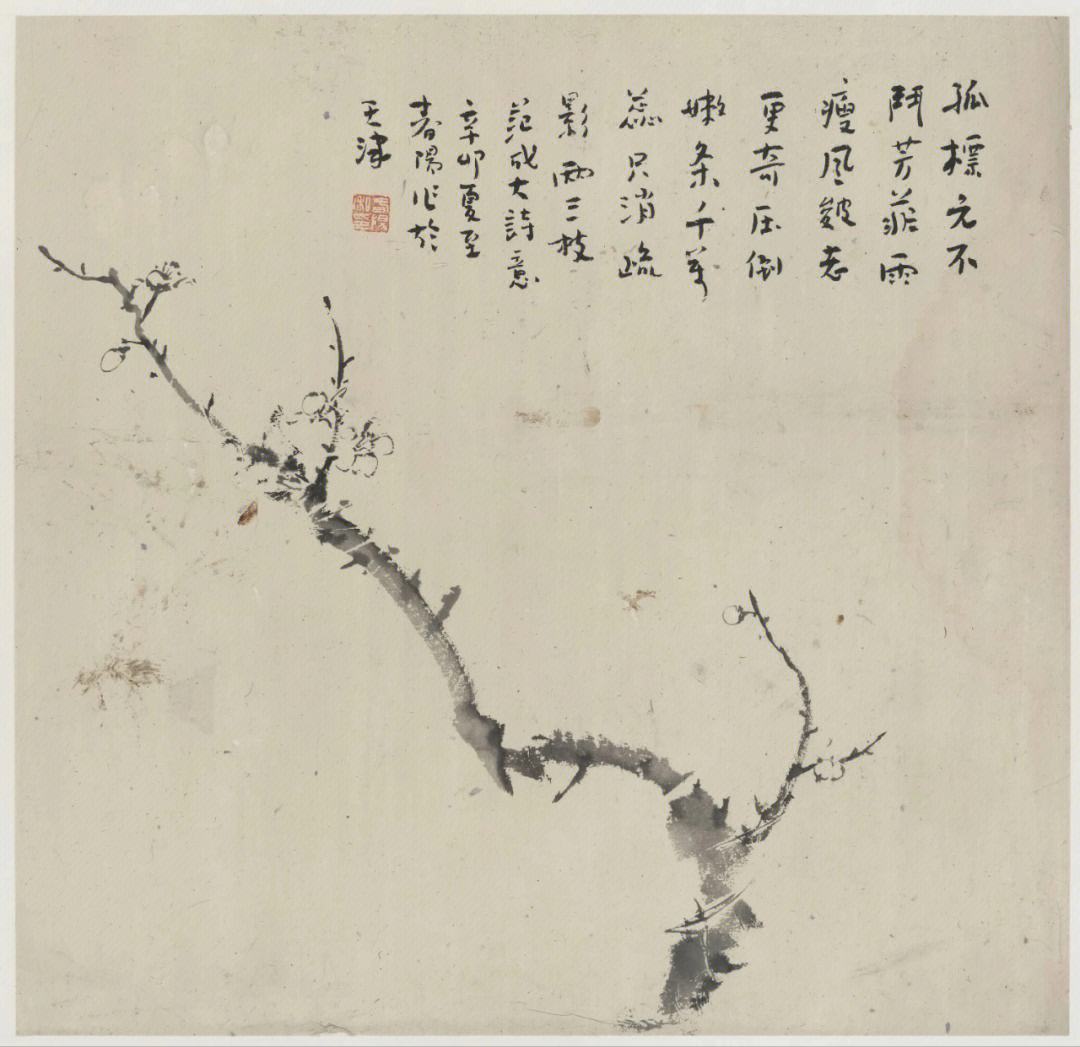 孤標元不
鬥芳菲雨
瘦風皴老
更奇压倒
嫩条千萬
蕊只消疏
影兩三枝
范成大詩意
辛卯夏至
春陽作於
天津